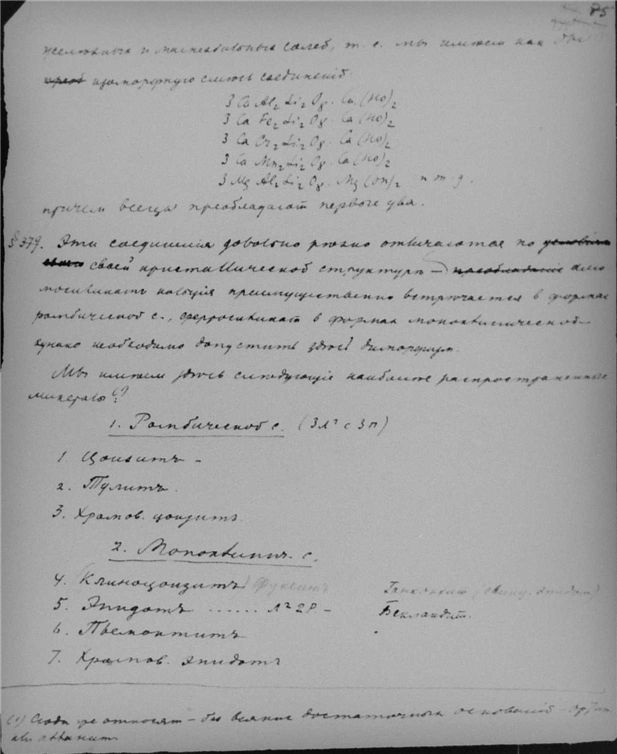 85
железныхъ и магнезіальныхъ солей, т. е. мы имѣемъ какъ бы
изоморфную смѣсь соединеній:
3 Ca Al2 Si2 O8 . Ca (HO)2
3 Ca Fe2 Si2 O8 . Ca (HO)2
3 Ca Cr2 Si2 O8 . Ca (HO)2
3 Ca Mn2 Si2 O8 . Ca (HO)2
3 Mg Al2 Si2 O8 . Mg (OH)2 и т. д.
причемъ всегда преобладаютъ первые два.
§ 379. Эти соединенія довольно рѣзко отличаются по
своей кристаллической структурѣ – алю
мосиликатъ кальція преимущественно встрѣчается въ формахъ
ромбической с., ферросиликатъ въ формахъ моноклинической –
однако необходимо допустить здѣсь диморфизмъ.
Мы имѣемъ здѣсь слѣдующіе наиболѣе распространенные
минералы (1):
1. Ромбической с. (3Л² с 3П)
1. Цоизитъ –
2. Тулитъ.
3. Хромов. цоизитъ
2. Моноклинич. с.
4. Клиноцоизитъ) Фукситъ
5. Эпидотъ ...... Л² 2P –
6. Пьемонтитъ
7. Хромов. эпидотъ
Ганкокитъ (свинц. эпидотъ)
Бекландитъ.
(1) Сюда же относятъ – безъ всякихъ достаточныхъ основаній –